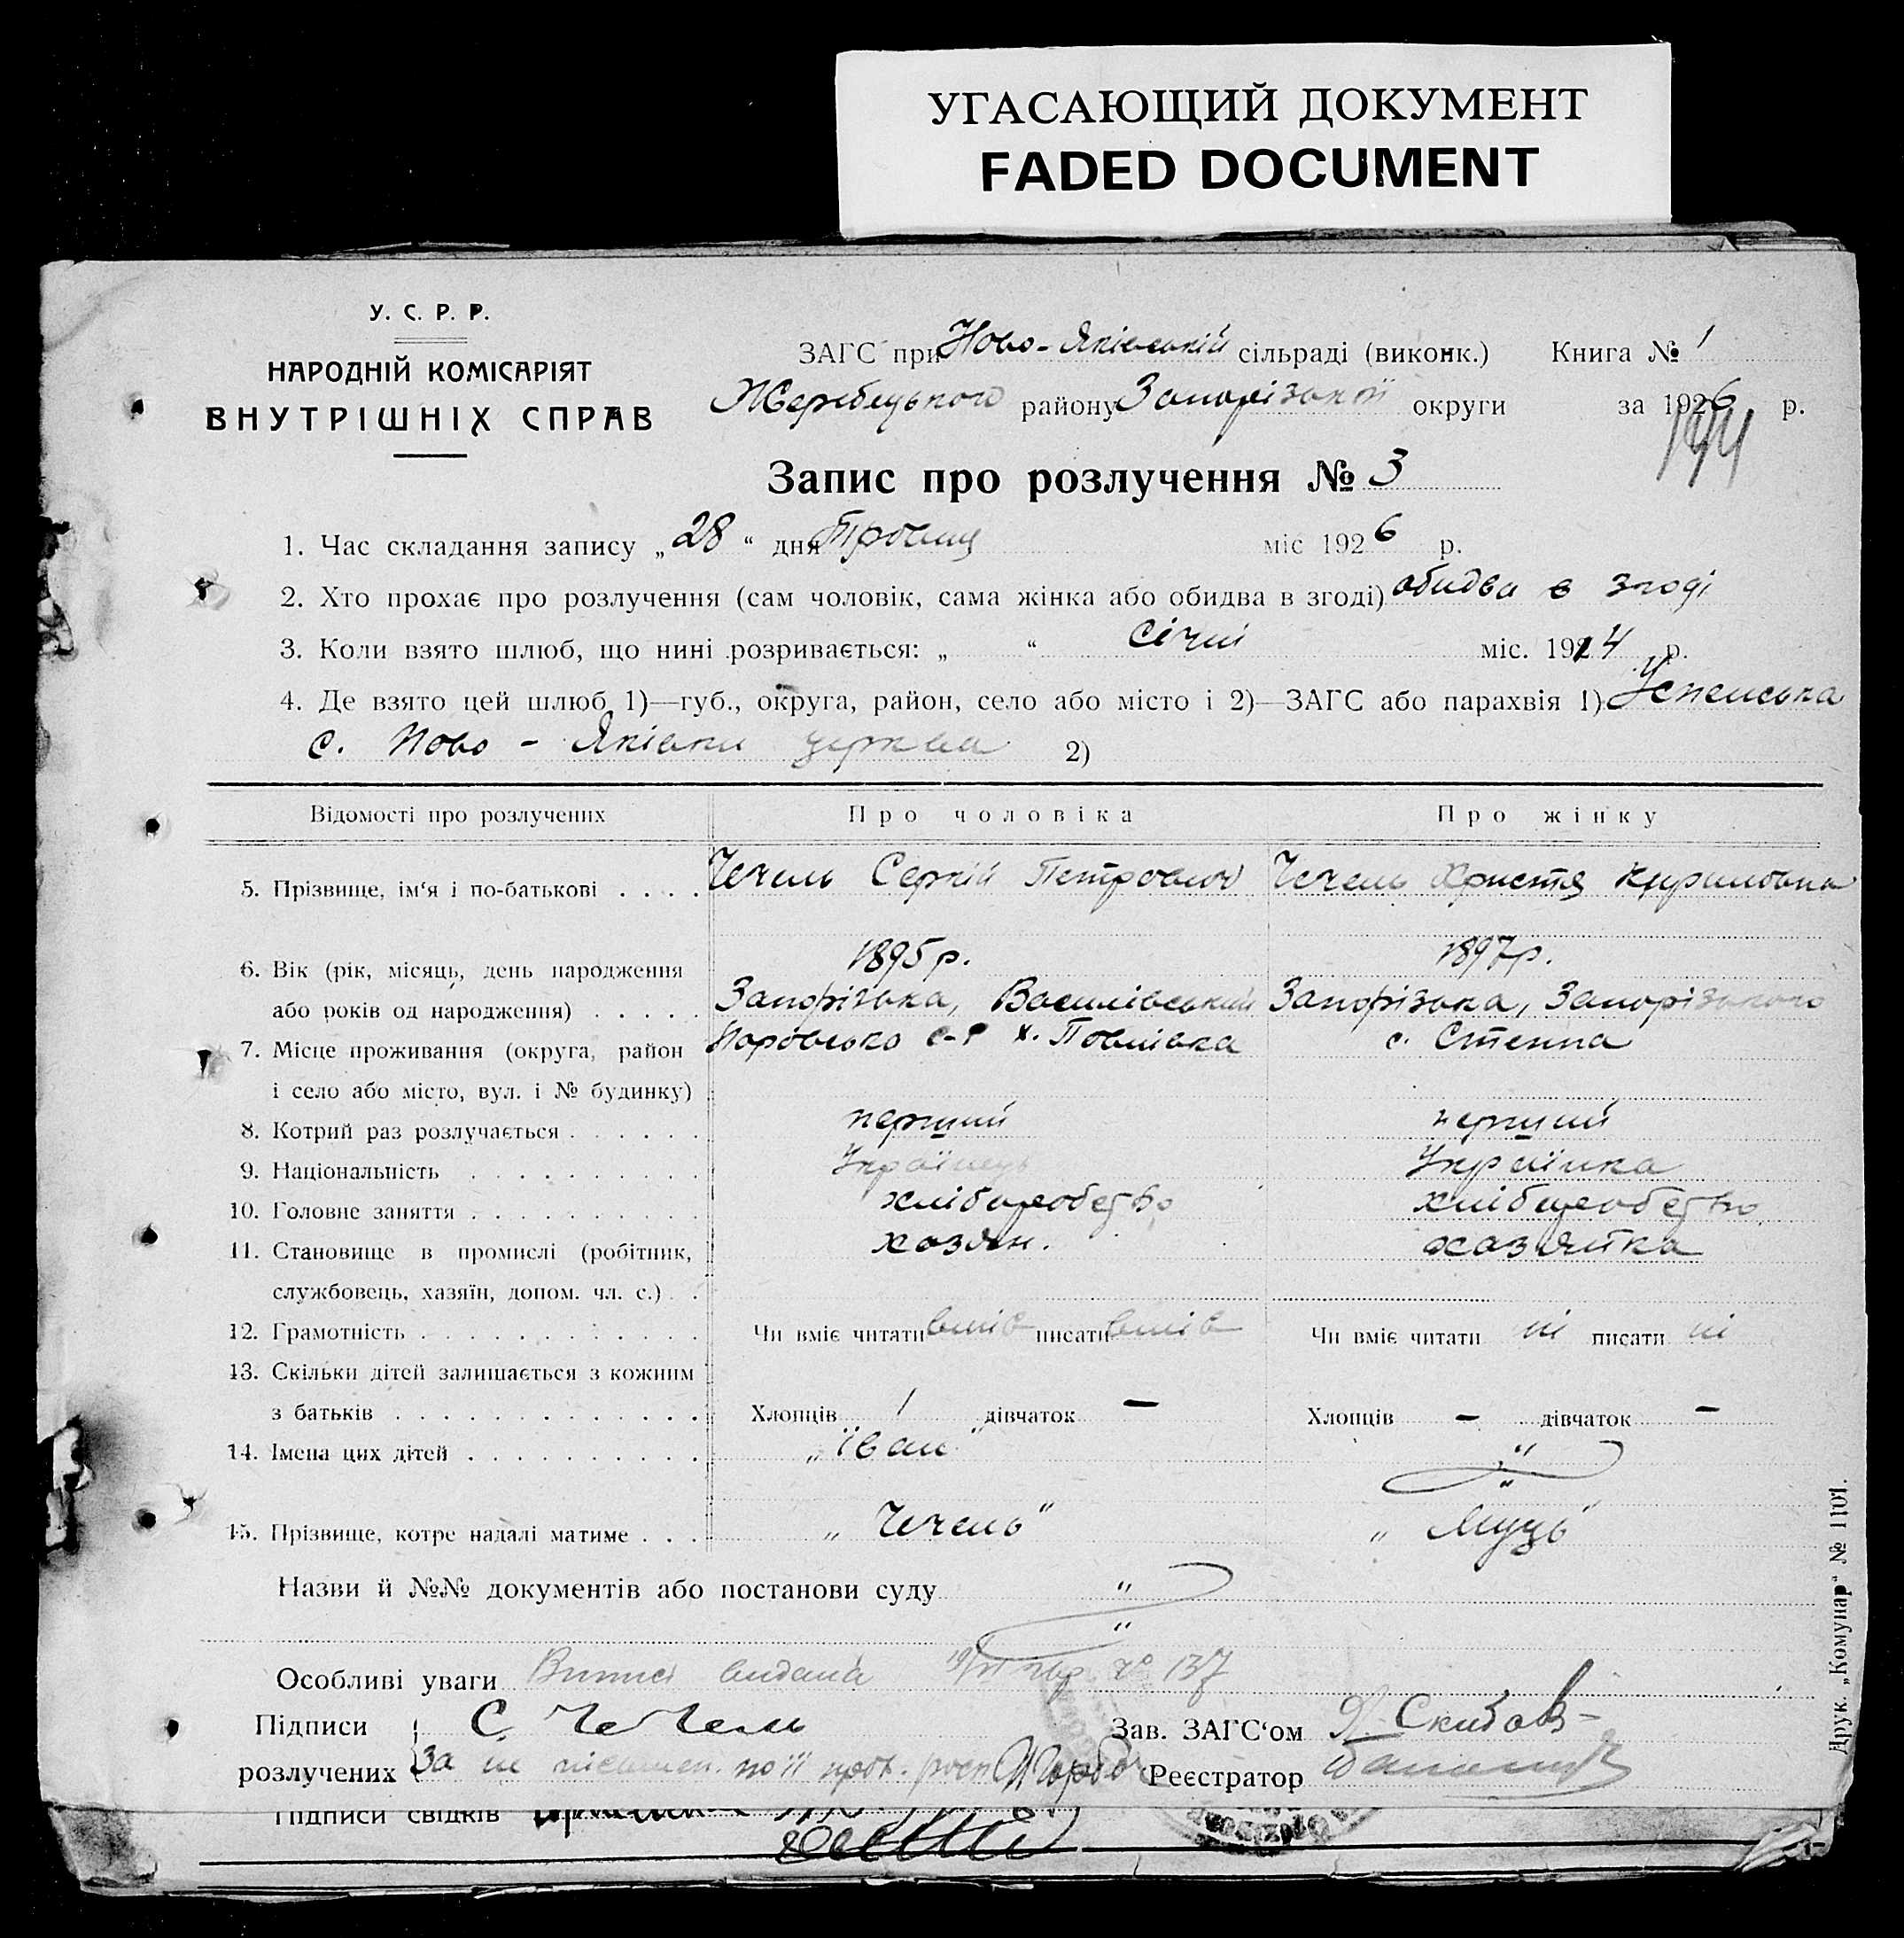 УГАСАЮЩИЙ ДОКУМЕНТ
FADED DOCUMENT
У. С. Р. Р.
НАРОДНІЙ КОМІСАРІЯТ
ВНУТРІШНІХ СПРАВ
ЗАГС при Ново-Яківській сільраді (виконк.) Книга № 1
Жеребецького району Запорізької округи за 1926 р.
194
Запис про розлучення № 3
1. Час складання запису „28“ дня міс 1926 р.
2. Хто прохає про розлучення (сам чоловік, сама жінка або обидва в згоді) обидва в згоді
3. Коли взято шлюб, що нині розривається: „ “ січні міс. 1914 р.
4. Де взято цей шлюб 1)—губ., округа, район, село або місто і 2)—ЗАГС або парахвія 1) Успенська
с. Ново - Яківки церква 2)
Відомості про розлучених Про чоловіка Про жінку
5. Прізвище, ім‘я і по-батькові . . . . Чечель Сергій Петрович Чечель Христя Кириловна
6. Вік (рік, місяць, день народження 1895 р. 1897 р.
або років од народження) . . . . . Запорізька, Василівський Запорізька, Запорізького
7. Місце проживання (округа, район х. с. Степна
і село або місто, вул. і № будинку)
8. Котрий раз розлучається . . . . . . перший перший
9. Національність . . . . . . . . . . Українець Українка
10. Головне заняття . . . . . . . . . . хліборобство хліборобство
11. Становище в промислі (робітник, хозяін. хозяйка
службовець, хазяїн, допом. чл. с.) . .
12. Грамотність . . . . . . . . . . . . Чи вміє читати вміє писати вміє Чи вміє читати ні писати ні
13. Скільки дітей залишається з кожним
з батьків . . . . . . . . . . . . . Хлопців 1 дівчаток — Хлопців — дівчаток —
14. Імена цих дітей . . . . . . . . . . „Іван“ "
15. Прізвище, котре надалі матиме . . . „Чечель“ „Муць“
Назви й №№ документів або постанови суду "
Особливі уваги Випись видана № 137
Підписи С. Чечель Зав. ЗАГС‘ом Скибов
розлучених За не письмен. по її прох. росп. Реєстратор
Підписи свідків
Друк. „Комунар“ № 1101.